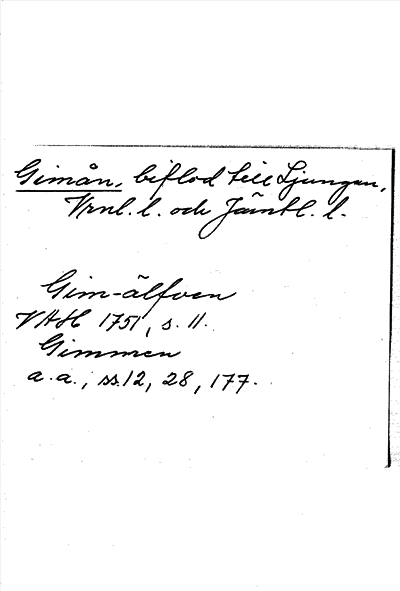 Gimån, biflod till Ljungan,
Vrnl. l. och Jämtl. l.
Gim-älfven
VAH 1751, s. 11.
Gimmen
a. a., ss. 12, 28, 177.